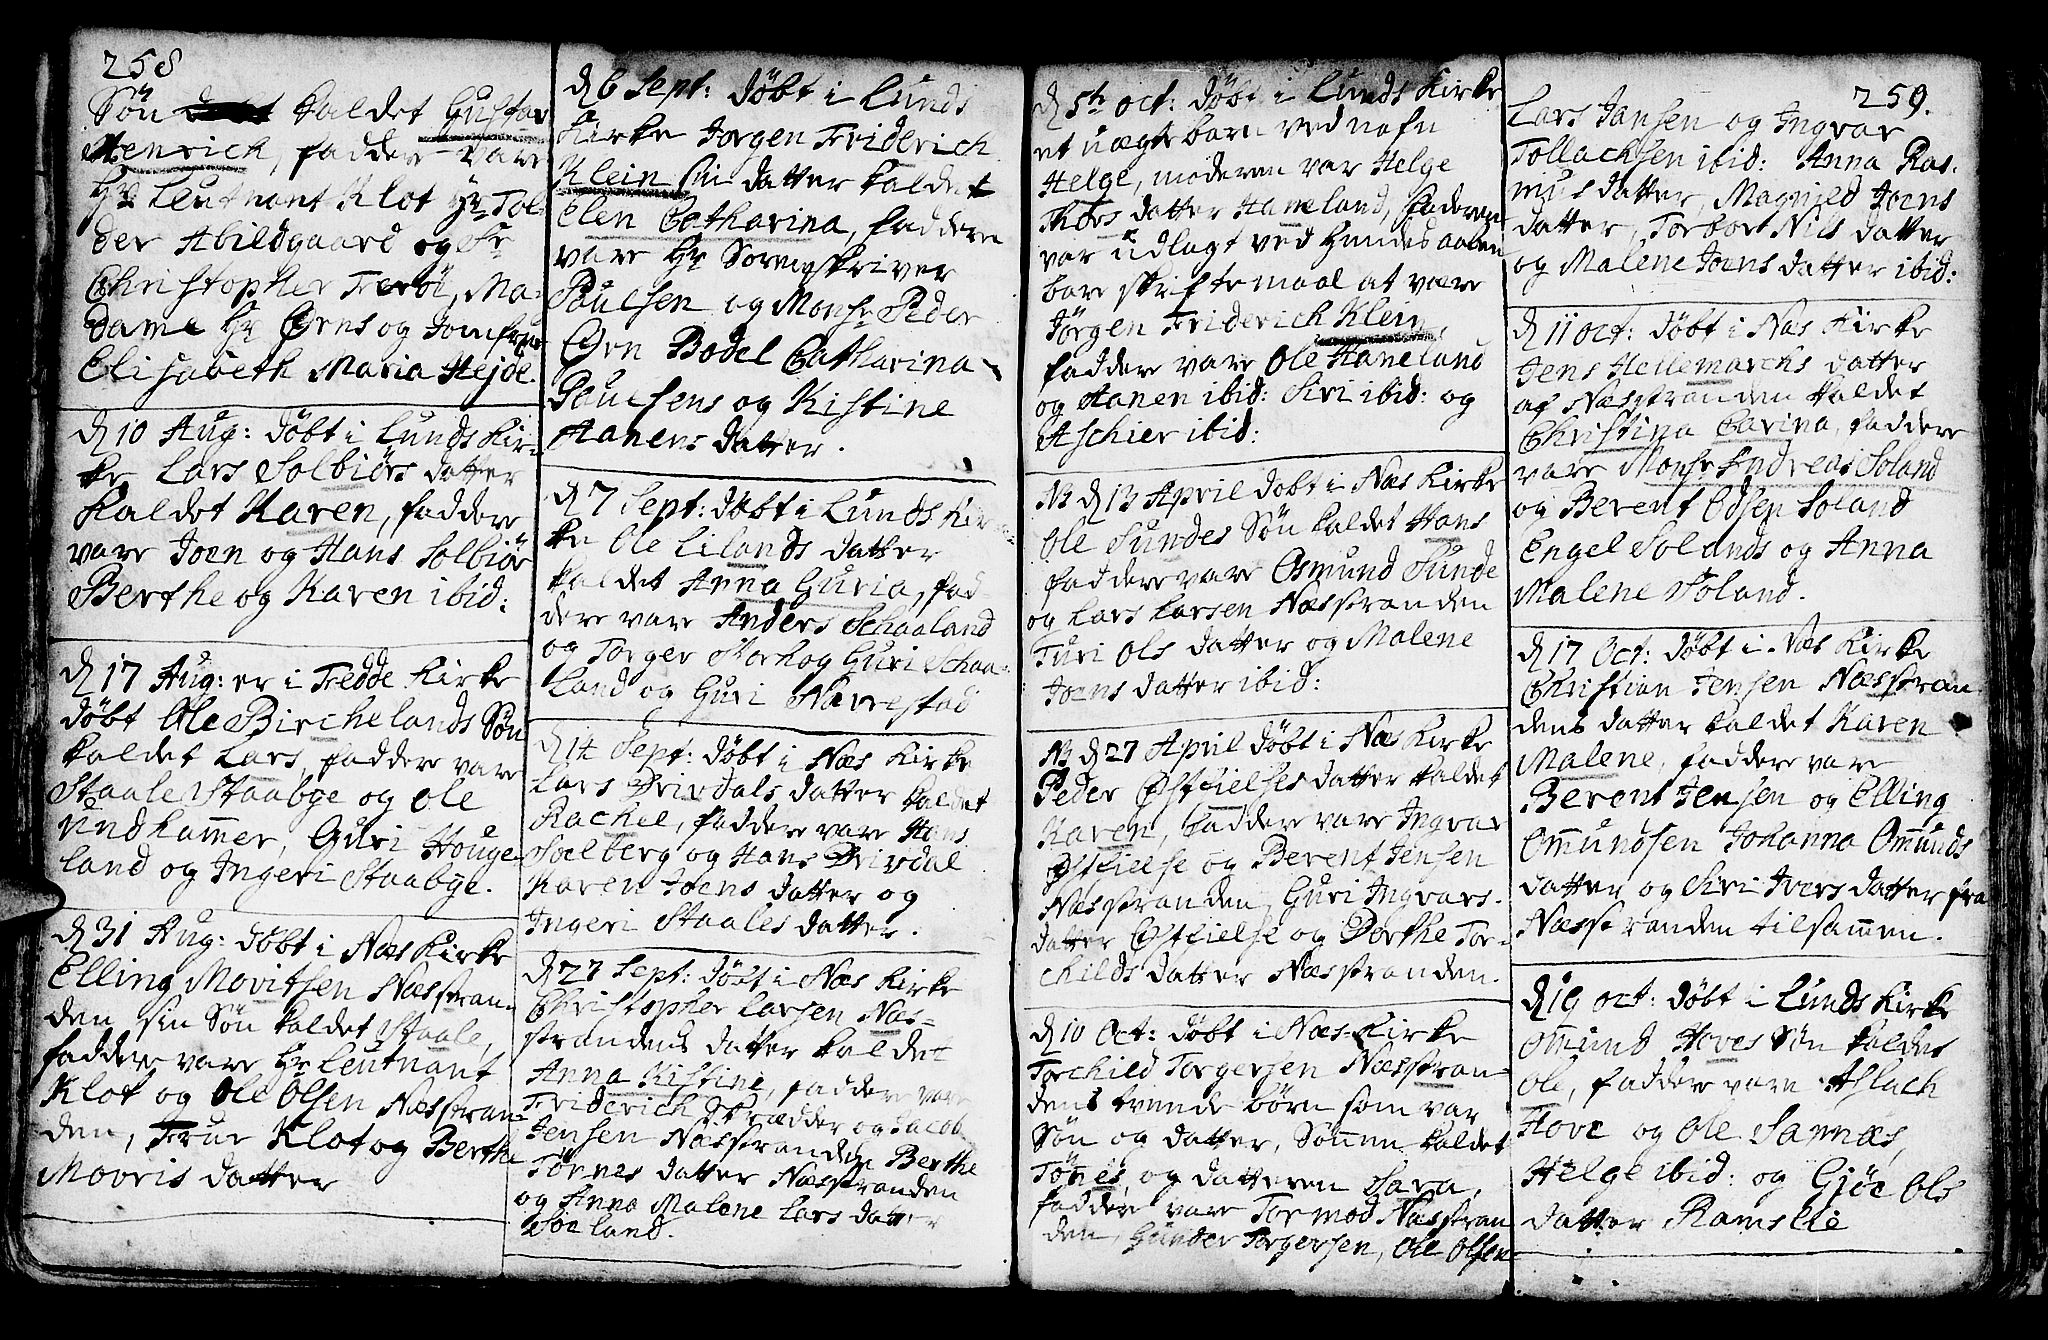 258
Søn kaldet Gustav
Henrich, faddere vare
Hr Leutnant Klot Hr Tol-
der Abildgaard og Sr
Christopher Feröe, Ma-
dame Hr Ørns og Jomfrue
Elisabeth Maria Hejde.
d 10 Aug: döbt i Lunds Kir-
ke Lars Solbiörs datter
kaldet Karen, faddere
vare Joen og Hans Solbiör
Berthe og Karen ibid:
d 17 Aug: er i Fedde Kirke
döbt Ole Birchelands Sön
kaldet Lars, faddere vare
Staale Staabye og Ole
Undhammer, Guri Houge-
land og Ingeri Staabye.
d 31 Aug: döbt i Næs Kirke
Elling Movitsen Næsstran-
den sin Sön kaldet Staale,
faddere vare Hr Leutnant
Klot og Ole Olsen Næsstran-
den, Frue Klot og Berthe
Movris datter
d 6 Sept: döbt i Lunds
Kirke Jorgen Friderich
Klein sin datter kaldet
Elen Catharina, faddere
vare Hr Sorenskriver
Pouelsen og Monsr Peder
Ørn Bodel Catharina
Pouelsens og Kistine
Hanens datter.
d 7 Sept: döbt i Lunds Kir-
ke Ole Lilands datter
kaldet Anna Guria, fad-
dere vare Anders Schaaland
og Torger Morkog Guri Schaa-
land og Guri Nævrestad
d 14 Sept: döbt i Næs Kirke
Lars Drivdals datter kaldet
Rachel, faddere vare Hans
Soelberg og Hans Drivdal
Karen Joens datter og
Ingeri Staales datter.
d 27 Sept: döbt i Næs Kirke
Christopher Larsen Næs-
strandens datter kaldet
Anna Kistine, faddere vare
Friderich Skrædder og Jacob
Jensen Næsstranden Berthe
Tönnes datter Næsstranden
og Anna Malene Lars datter
Soeland.
d 5te Oct: döbt i Lunds Kirke
et uægte barn ved nafn
Helge, moderen var Helge
Thors datter Haneland, faderen
var udlagt ved hendes aaben
bare skriftemaal at være
Jörgen Friderich Klein,
faddere vare Ole Haneland
og Hanen ibid: Siri ibid: og
Aschier ibid:
NB d 13 April döbt i Næs Kirke
Ole Sundes Sön kaldet Hans
faddere vare Osmund Sunde
og Lars Larsen Næsstranden
Turi Ols datter og Malene
Joens datter ibid:
NB d 27 April döbt i Næs Kirke
Peder Østfielses datter kaldet
Karen, faddere vare Ingvar
Østfielse og Berent Jensen
Næsstranden, Guri Ingvars-
datter Østfielse og Dorthe Tor-
childs datter Næsstranden.
d 10 Oct: döbt i Næs Kirke
Torchild Torgersen Næsstran-
dens tvende börn som var
Sön og datter, Sönnen kaldet
Tönes og datteren Sara,
faddere vare Tormod Næsstran
den, Gunder Torgersen, Ole Olsen
259.
Lars Jansen og Ingvar
Tollachsen ibid: Anna Ras-
mus datter, Magnild Joens
datter, Torbor Nils datter
og Malene Joens datter ibid:
d 11 Oct: döbt i Næs Kirke
Jens Hellemarchs datter
af Næsstranden kaldet
Christina Carina, faddere
vare Monsr Andreas Soland
og Berent Edsen Soland
Engel Solands og Anna
Malene Soland.
d 17 Oct: döbt i Næs Kirke
Christian Jensen Næsstran-
dens datter kaldet Karen
Malene, faddere vare
Berent Jensen og Elling
Ommundsen Johanna Ommunds
datter og Siri Ivers datter fra
Næsstranden tilsammen.
d 19 Oct: döbt i Lunds Kirke
Ommund Hoves Sön kaldet
Ole, faddere vare Aslach
Hove og Ole Sannæs,
Helge ibid: og Gjöe Ols
datter Ramslie